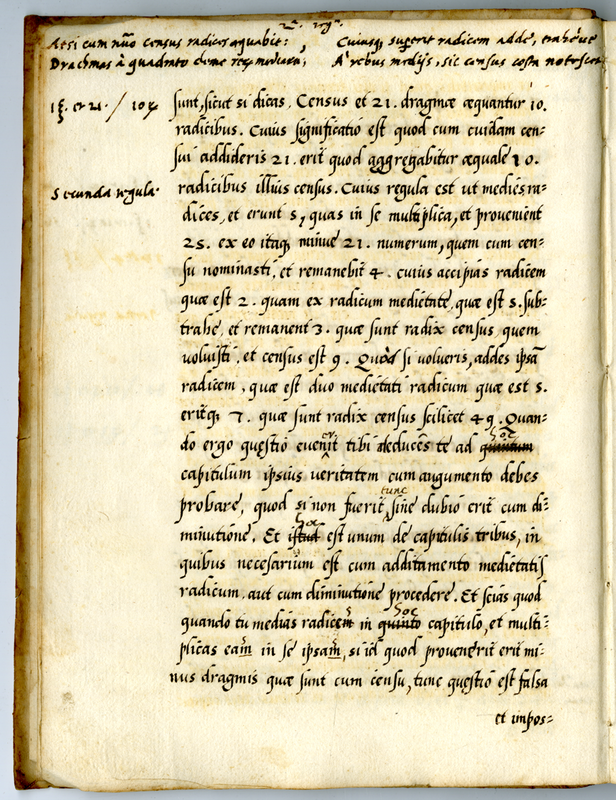 At si cum nūo census radices æquabit: Cuiusq; superit radicem adde, trahéue
Drachmas à quadrato deme A rebus medijs, sic census costa notescet
et 21. / 10
sunt, sicut si dicas. Census et 21. dragmæ æquantur 10.
radicibus. Cuius significatio est quod cum cuidam cen-
sui addideris 21. erit quod aggregabitur æquale 10.
Secunda regula.
radicibus illius census. Cuius regula est ut medies ra-
dices, et erunt 5, quas in se multiplica, et provenient
25. ex eo itaq; minue 21. numerum, quem cum cen-
su nominasti, et remanebit 4. cuius accipias radicem
quæ est 2. quam ex radicum medietate, quæ est 5. sub-
trahe, et remanent 3. quæ sunt radix census, quem
voluisti, et census est 9. Quòd si volueris, addes ipsā
radicem, quæ est duo medietati radicum quæ est 5.
eritq; 7. quæ sunt radix census scilicet 49. Quan-
do ergo quęstio evenerit tibi deducēs te ad hoc
capitulum ipsius veritatem cum augumento debes
probare, quod si non fuerit, tunc sine dubio erit cum di-
minutione. Et hoc est unum de capitulis tribus, in
quibus necesarium est cum additamento medietatis
radicum, aut cum diminutione procedere. Et scias quod
quando tu medias radices in hoc capitulo, et multi-
plicas eam in se ipsam, si id quod provenerit erit mi-
nus dragmis quæ sunt cum censu, tunc quęstio est falsa
et impos-